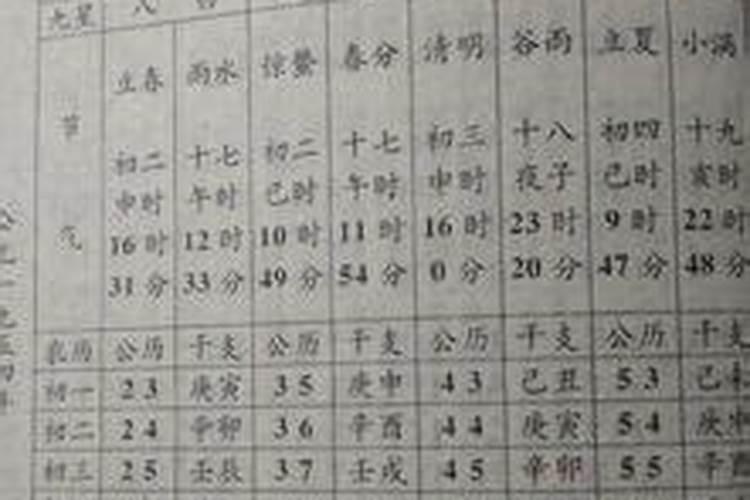 九星 八 白
节 气 立春 雨水 惊蛰 春分 清明 谷雨 立夏 小满
初二 十七 初二 十七 初三 十八 初四 十九
申时 午时 巳时 午时 申时 夜子 巳时 亥时
16时 12时 10时 11时 16时 23时 9时 22时
31分 33分 49分 54分 0分 20分 47分 48分
农历 公历 干支 公历 干支 公历 干支 公历 干支
初一 2 3 庚寅 3 5 庚申 4 3 己丑 5 3 己未
初二 2 4 辛卯 3 6 辛酉 4 4 庚寅 5 4 庚申
初三 2 5 壬辰 3 7 壬戌 4 5 辛卯 5 5 辛酉